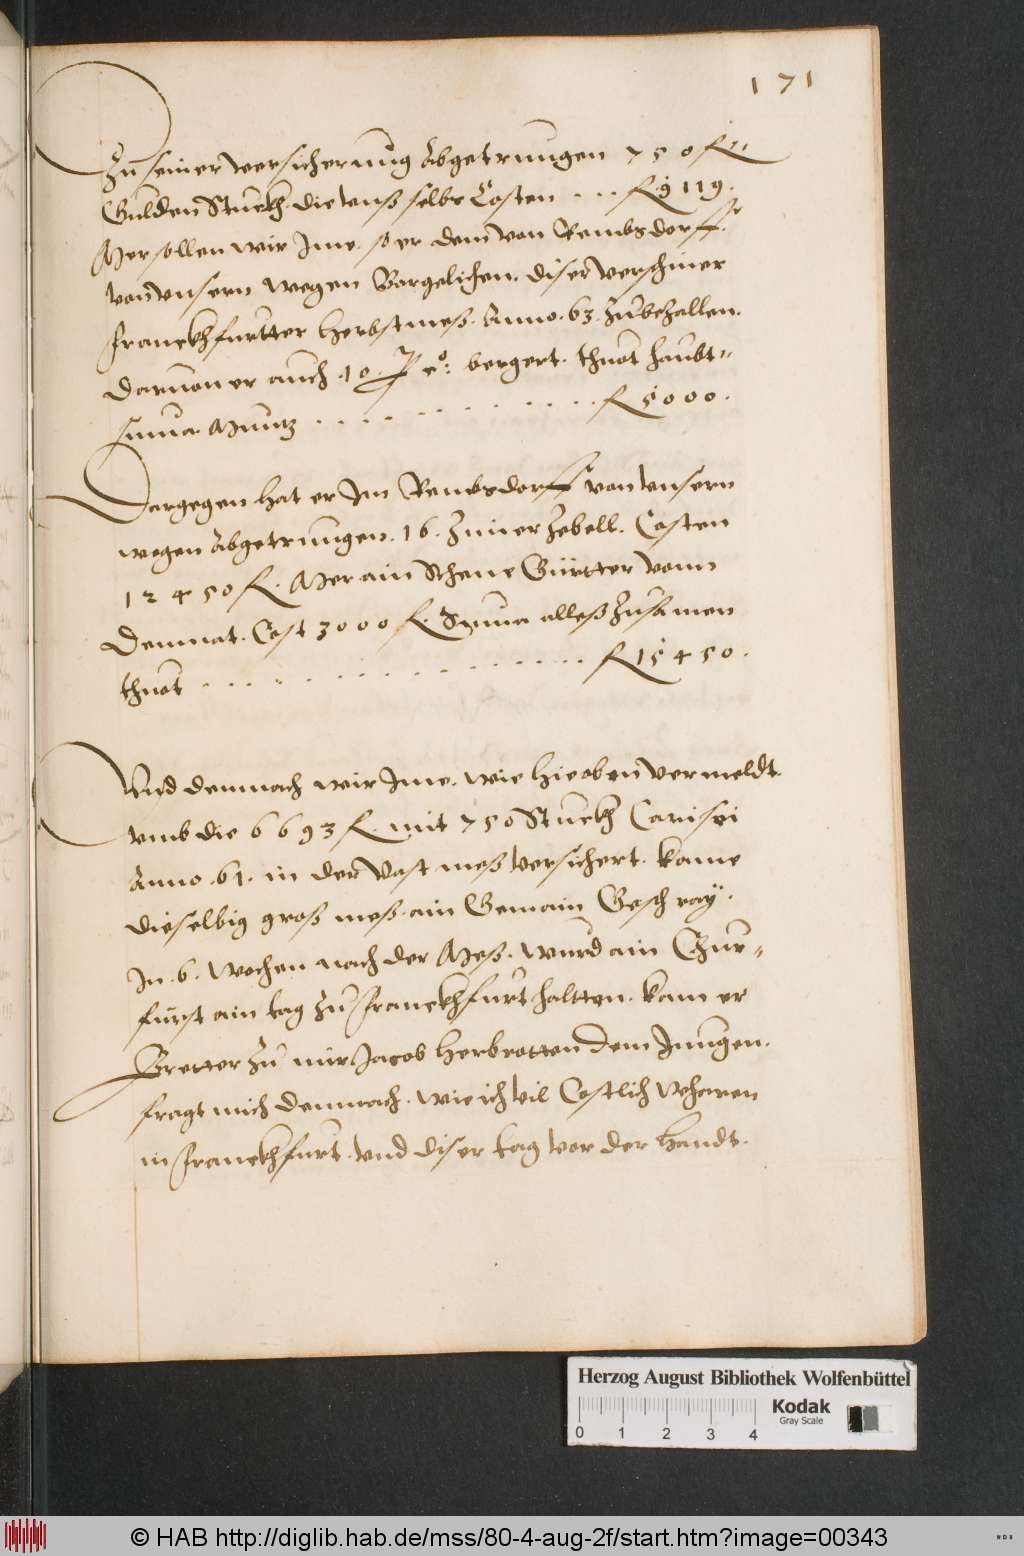 171
Zu seiner versicherung Abgetrungen 750 fl
Gulden Stuckh. die vnß selbs Costen ... fl 9119.
Mer sollen wir Ime. so er dem von Rembsdorff.
von vnsern wegen Dargelichen. diser verschiner
Franckhfurtter Herbstmeß. Anno. 63. zubezallen.
Daruon er auch .10. p co: bergert. thuot haubt-
suma. Muntz . . . . . . . . . . . fl 5000.
Dargegen hat er Im Rembsdorff von vnsern
wegen Abgetrungen. 16. Zimer Zebell. Costen
12450 fl. Mer ain Schene Gürtter vonn
Demuat. Cost 3000 fl. Suma alleß Zusamen
thuot . . . . . . . . . . . . . . . . fl 15450.
Vnd demnach wir Ime. wie hieoben vermeldt.
vmb die 6693 fl. mit 750 Stuckh Carisei
Anno .61. in der Vast meß versichert. kame
dieselbig groß meß. ain Gemain Geschray.
In .6. Wochen nach der Meß. wurd ain Chur-
fürst ain tag zu Franckhfurt haltten. kam er
Bretter zu mir Jacob Herbrotten dem Jungen.
fragt mich demnach. wie ich vil Costlich Wharen
in Franckhfurt. vnd diser tag vor der Handt.
Herzog August Bibliothek Wolfenbüttel
Kodak
Gray Scale
0 1 2 3 4
© HAB http://diglib.hab.de/mss/80-4-aug-2f/start.htm?image=00343